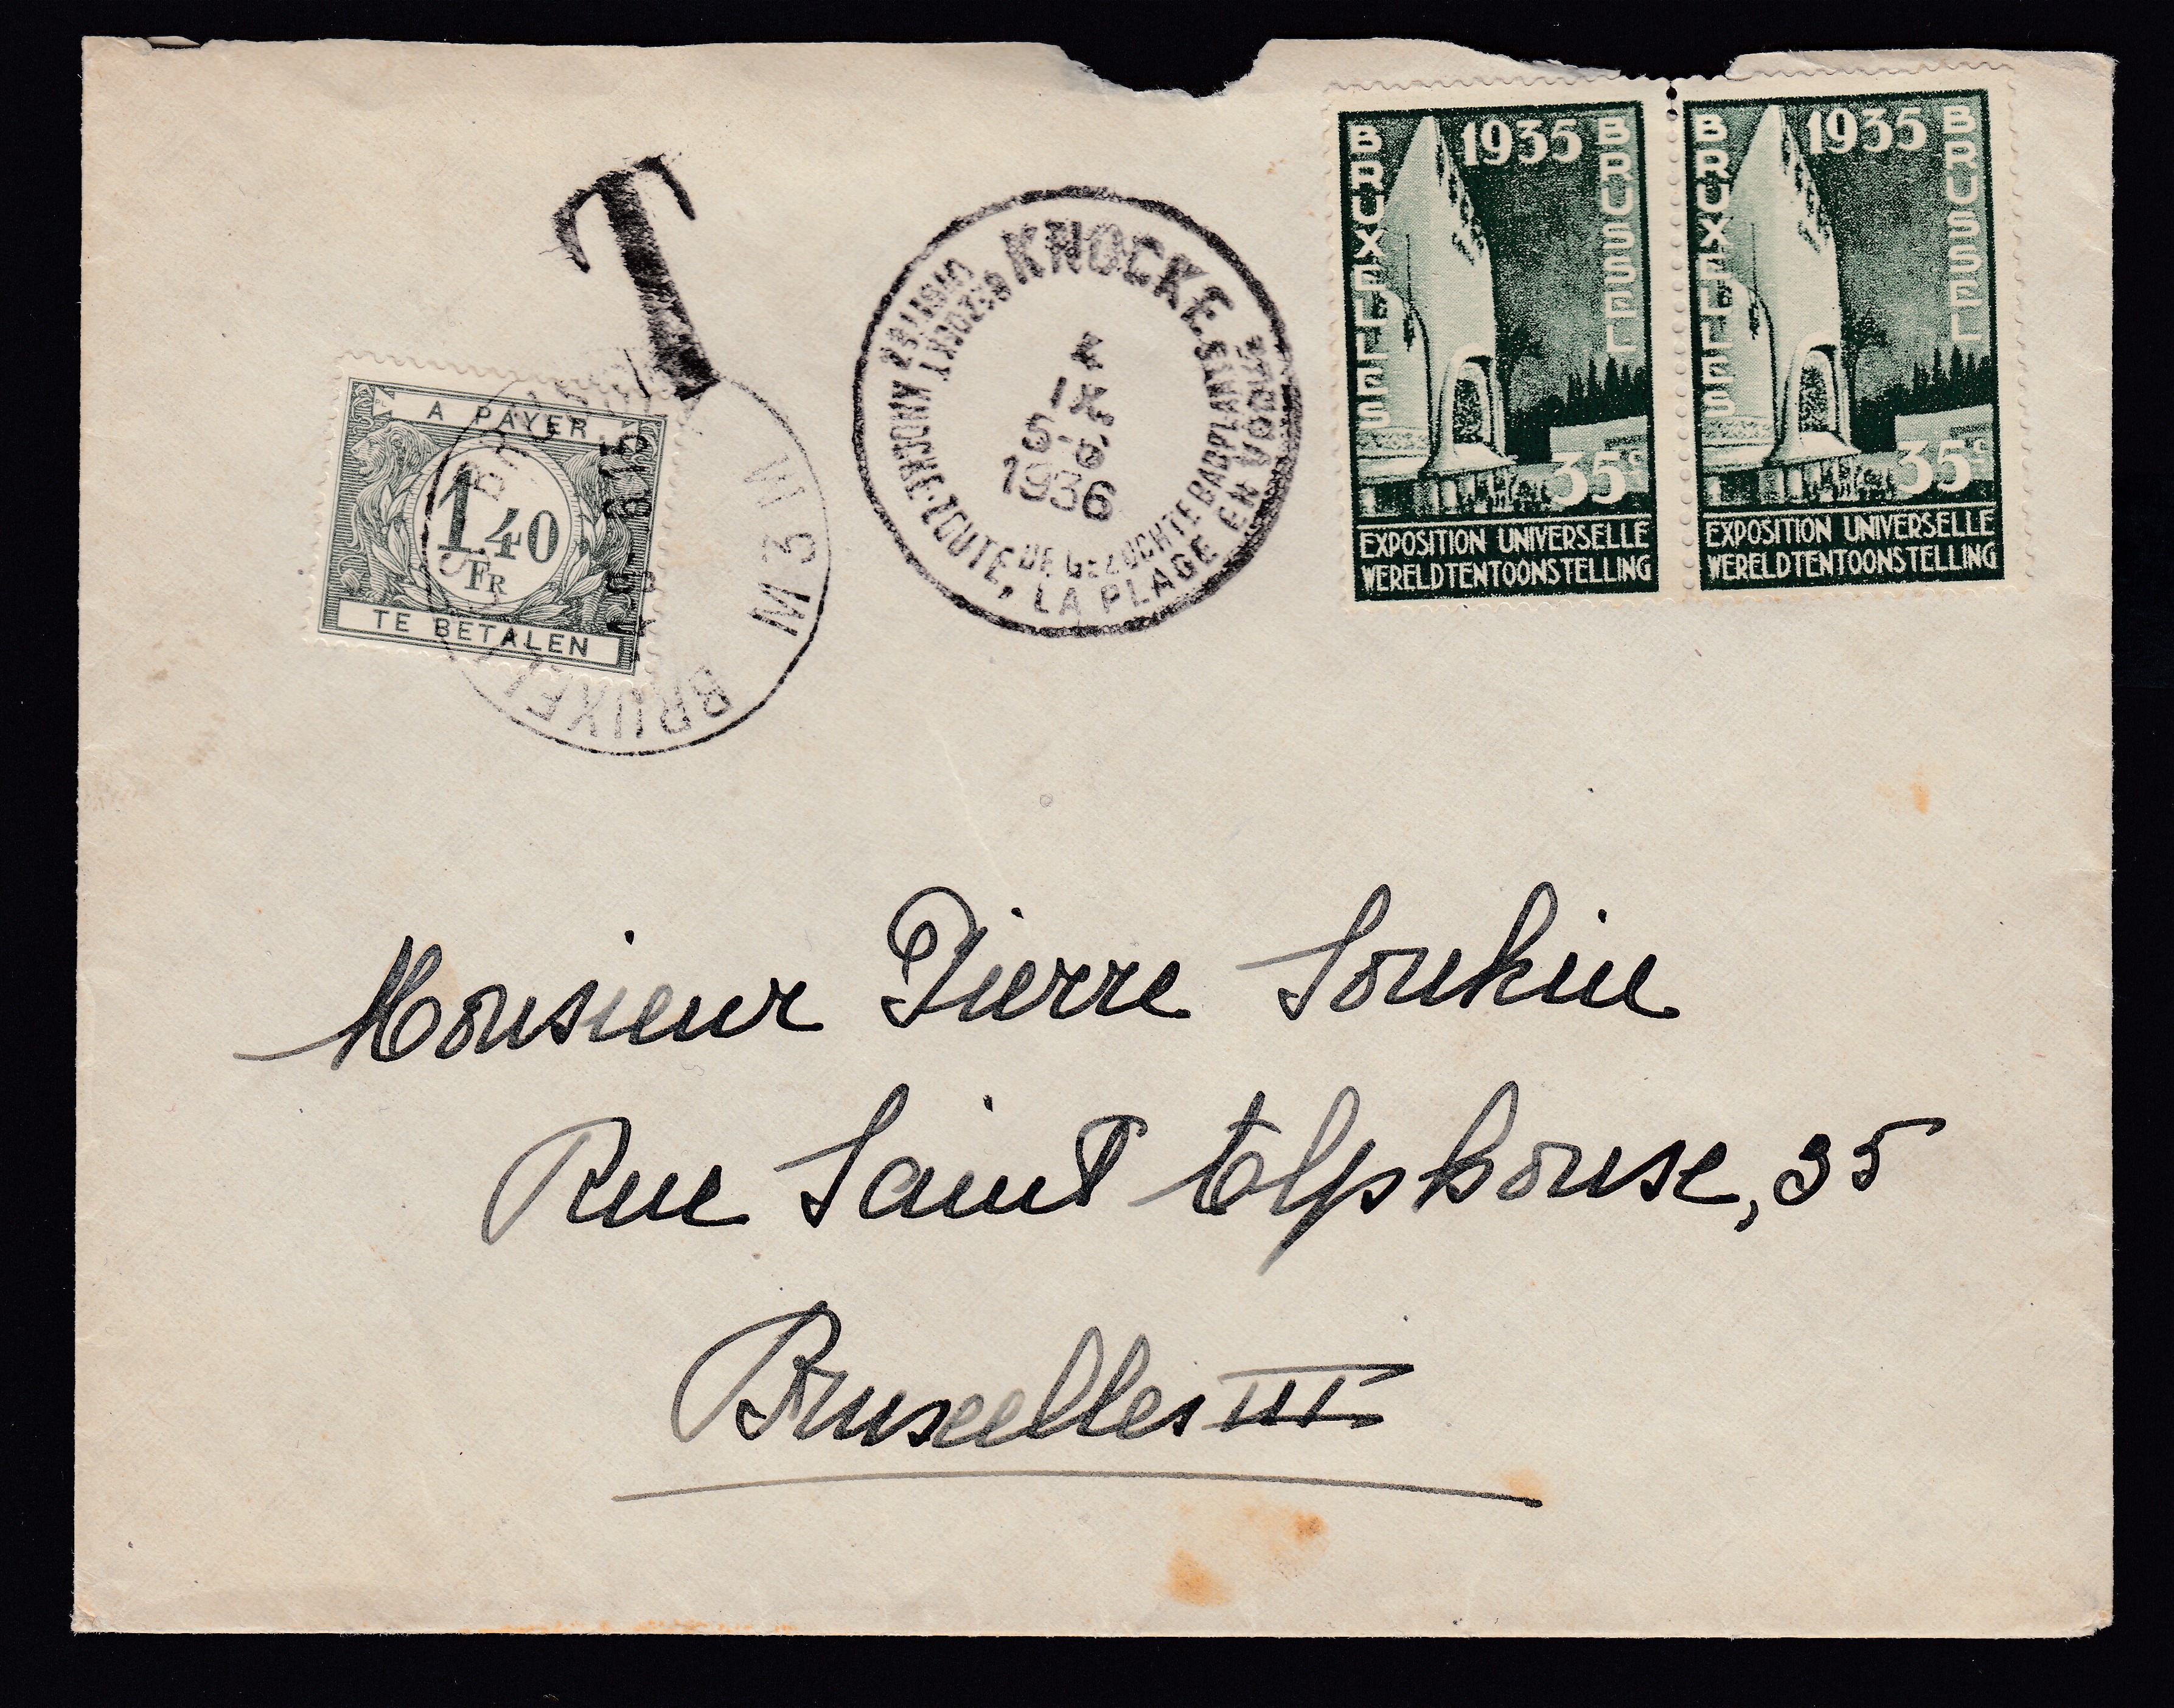 T
A PAYER
1.40
FR
TE BETALEN
BRUXEL
M 3 M
KNOCKE
IX
1936
KNOCKE-ZOUTE, LA PLAGE EN VOGUE
DE BEZOCHTE BADPLAATS
1935
BRUXELLES
BRUSSEL
35c
EXPOSITION UNIVERSELLE
WERELDTENTOONSTELLING
1935
BRUXELLES
BRUSSEL
35c
EXPOSITION UNIVERSELLE
WERELDTENTOONSTELLING
Monsieur Pierre Soukine
Rue Saint Alphonse, 35
Bruxelles III